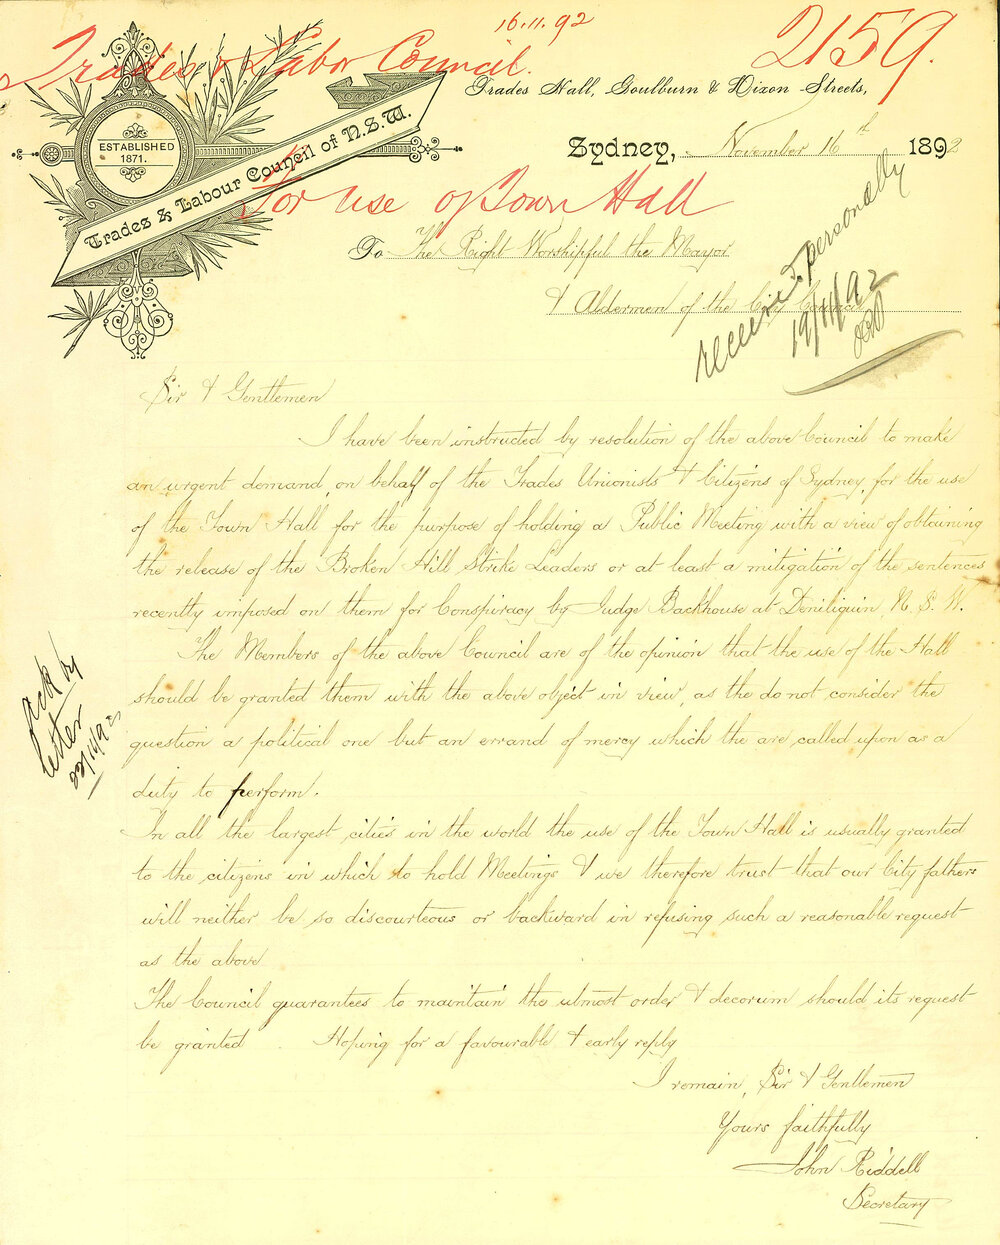 16.11.92
Trades & Labor Council.
2159.
Trades Hall, Goulburn & Dixon Streets,
ESTABLISHED
1871.
Trades & Labour Council of N.S.W.
Sydney, November 16th 1892
For use of Town Hall
To The Right Worshipful the Mayor
& Aldermen of the City Council
received personally
19/11/92
Sir & Gentlemen
I have been instructed by resolution of the above Council to make
an urgent demand, on behalf of the Trades Unionists & Citizens of Sydney, for the use
of the Town Hall for the purpose of holding a Public Meeting with a view of obtaining
the release of the Broken Hill Strike Leaders or at least a mitigation of the sentences
recently imposed on them for Conspiracy by Judge Backhouse at Deniliquin N. S. W.
The Members of the above Council are of the opinion that the use of the Hall
should be granted them with the above object in view, as the do not consider the
question a political one but an errand of mercy which the are called upon as a
duty to perform.
Ack by
letter
22/11/92
In all the largest cities in the world the use of the Town Hall is usually granted
to the citizens in which to hold Meetings & we therefore trust that our City fathers
will neither be so discourteous or backward in refusing such a reasonable request
as the above
The Council guarantees to maintain the utmost order & decorum should its request
be granted. Hoping for a favourable & early reply
I remain, Sir & Gentlemen
Yours faithfully
John Riddell
Secretary